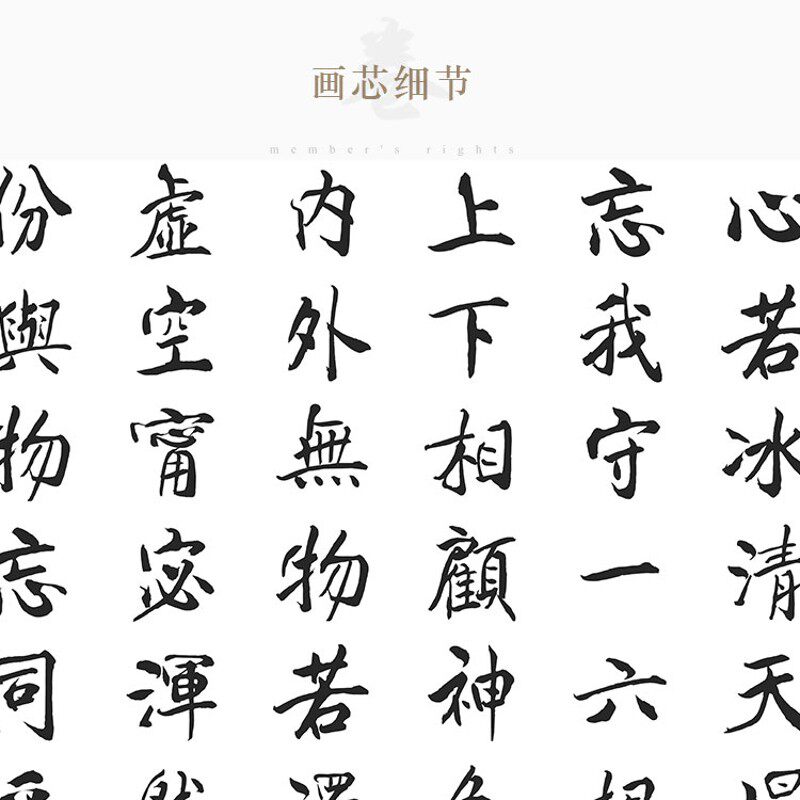 画芯细节
member's rights
心若冰清天
忘我守一六
上下相顧神
内外無物若
虚空甯宓渾
份與物忘同